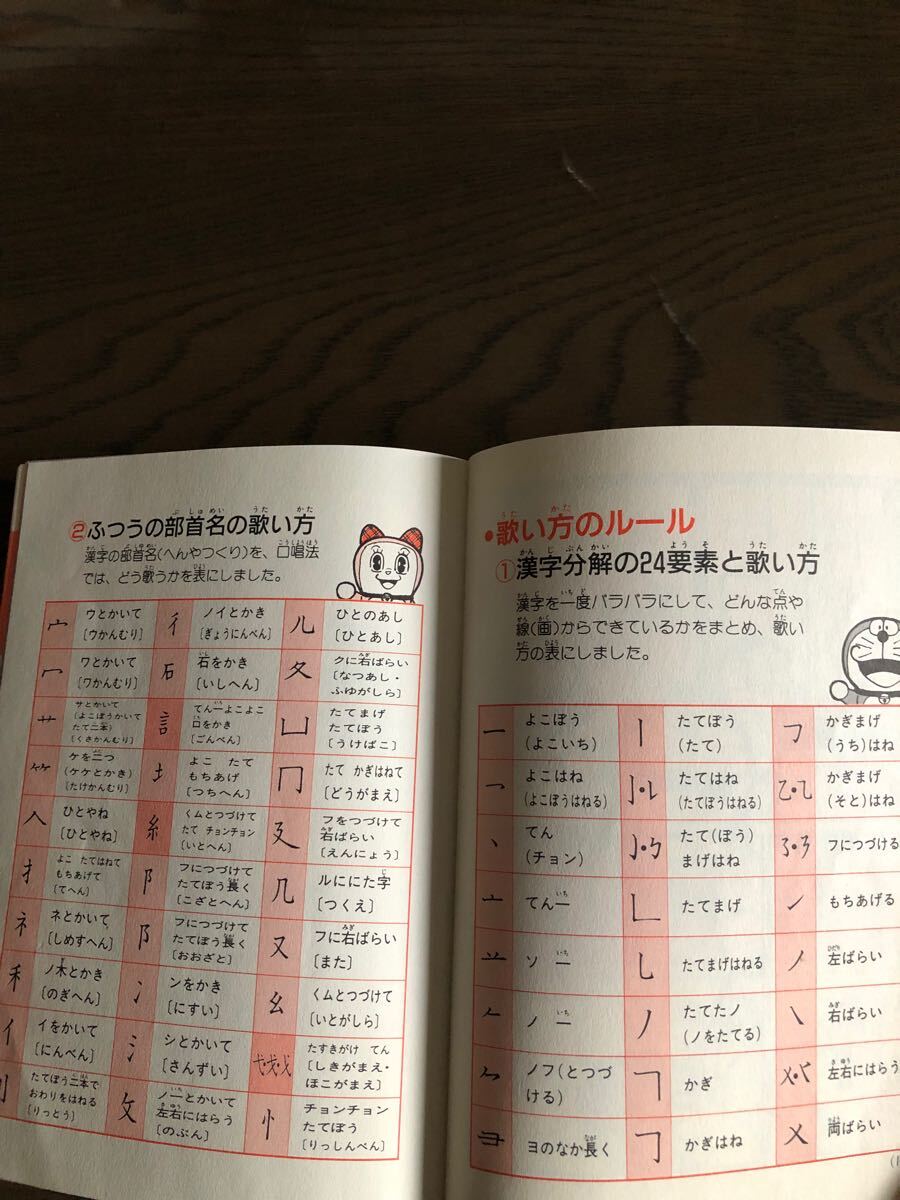 ②ふつうの部首名の歌い方
漢字の部首名(へんやつくり)を、口唱法
では、どう歌うかを表にしました。
宀 ウとかいて 彳 ノイとかき 儿 ひとのあし
〔ウかんむり〕 〔ぎょうにんべん〕 〔ひとあし〕
冖 ワとかいて 石 石をかき 夂 クに右ばらい
〔ワかんむり〕 〔いしへん〕 〔なつあし・
ふゆがしら〕
艹 サとかいて 訁 てん一よこよこ 凵 たてまげ
(よこぼうかいて 口をかき たてぼう
たて二本) 〔ごんべん〕 〔うけばこ〕
〔くさかんむり〕
⺮ ケを二つ 土 よこ たて 冂 たて かぎはねて
(ケケとかき) もちあげ 〔どうがまえ〕
〔たけかんむり〕 〔つちへん〕
𠆢 ひとやね 糸 くムとつづけて 廴 フをつづけて
〔ひとやね〕 たて チョンチョン 右ばらい
〔いとへん〕 〔えんにょう〕
扌 よこ たてはねて 阝 フにつづけて 几 ルににた字
もちあげて たてぼう長く 〔つくえ〕
〔てへん〕 〔こざとへん〕
礻 ネとかいて 阝 フにつづけて 又 フに右ばらい
〔しめすへん〕 たてぼう長く 〔また〕
〔おおざと〕
禾 ノ木とかき 冫 ンをかき 幺 くムとつづけて
〔のぎへん〕 〔にすい〕 〔いとがしら〕
亻 イをかいて 氵 シとかいて 弋・戈・戈 たすきがけ てん
〔にんべん〕 〔さんずい〕 〔しきがまえ・
ほこがまえ〕
刂 たてぼう二本で 攵 ノ一とかいて 忄 チョンチョン
おわりをはねる 左右にはらう たてぼう
〔りっとう〕 〔のぶん〕 〔りっしんべん〕
•歌い方のルール
①漢字分解の24要素と歌い方
漢字を一度バラバラにして、どんな点や
線(画)からできているかをまとめ、歌い
方の表にしました。
一 よこぼう 丨 たてぼう ㇆ かぎまげ
(よこいち) (たて) (うち)はね
乛 よこはね 亅・㇂ たてはね ㇠・⺄ かぎまげ
(よこぼうはねる) (たてぼうはねる) (そと)はね
丶 てん たて(ぼう) フにつづける
(チョン) まげはね
亠 てん一 𠃊 たてまげ ㇀ もちあげる
䒑 ソ 一 乚 たてまげはねる 丿 左ばらい
𠂉 ノ 一 丿 たてたノ ㇏ 右ばらい
(ノをたてる)
ノフ(とつづ ㇕ かぎ 左右にはらう
ける)
⺕ ヨのなか長く ㇆ かぎはね 㐅 両ばらい